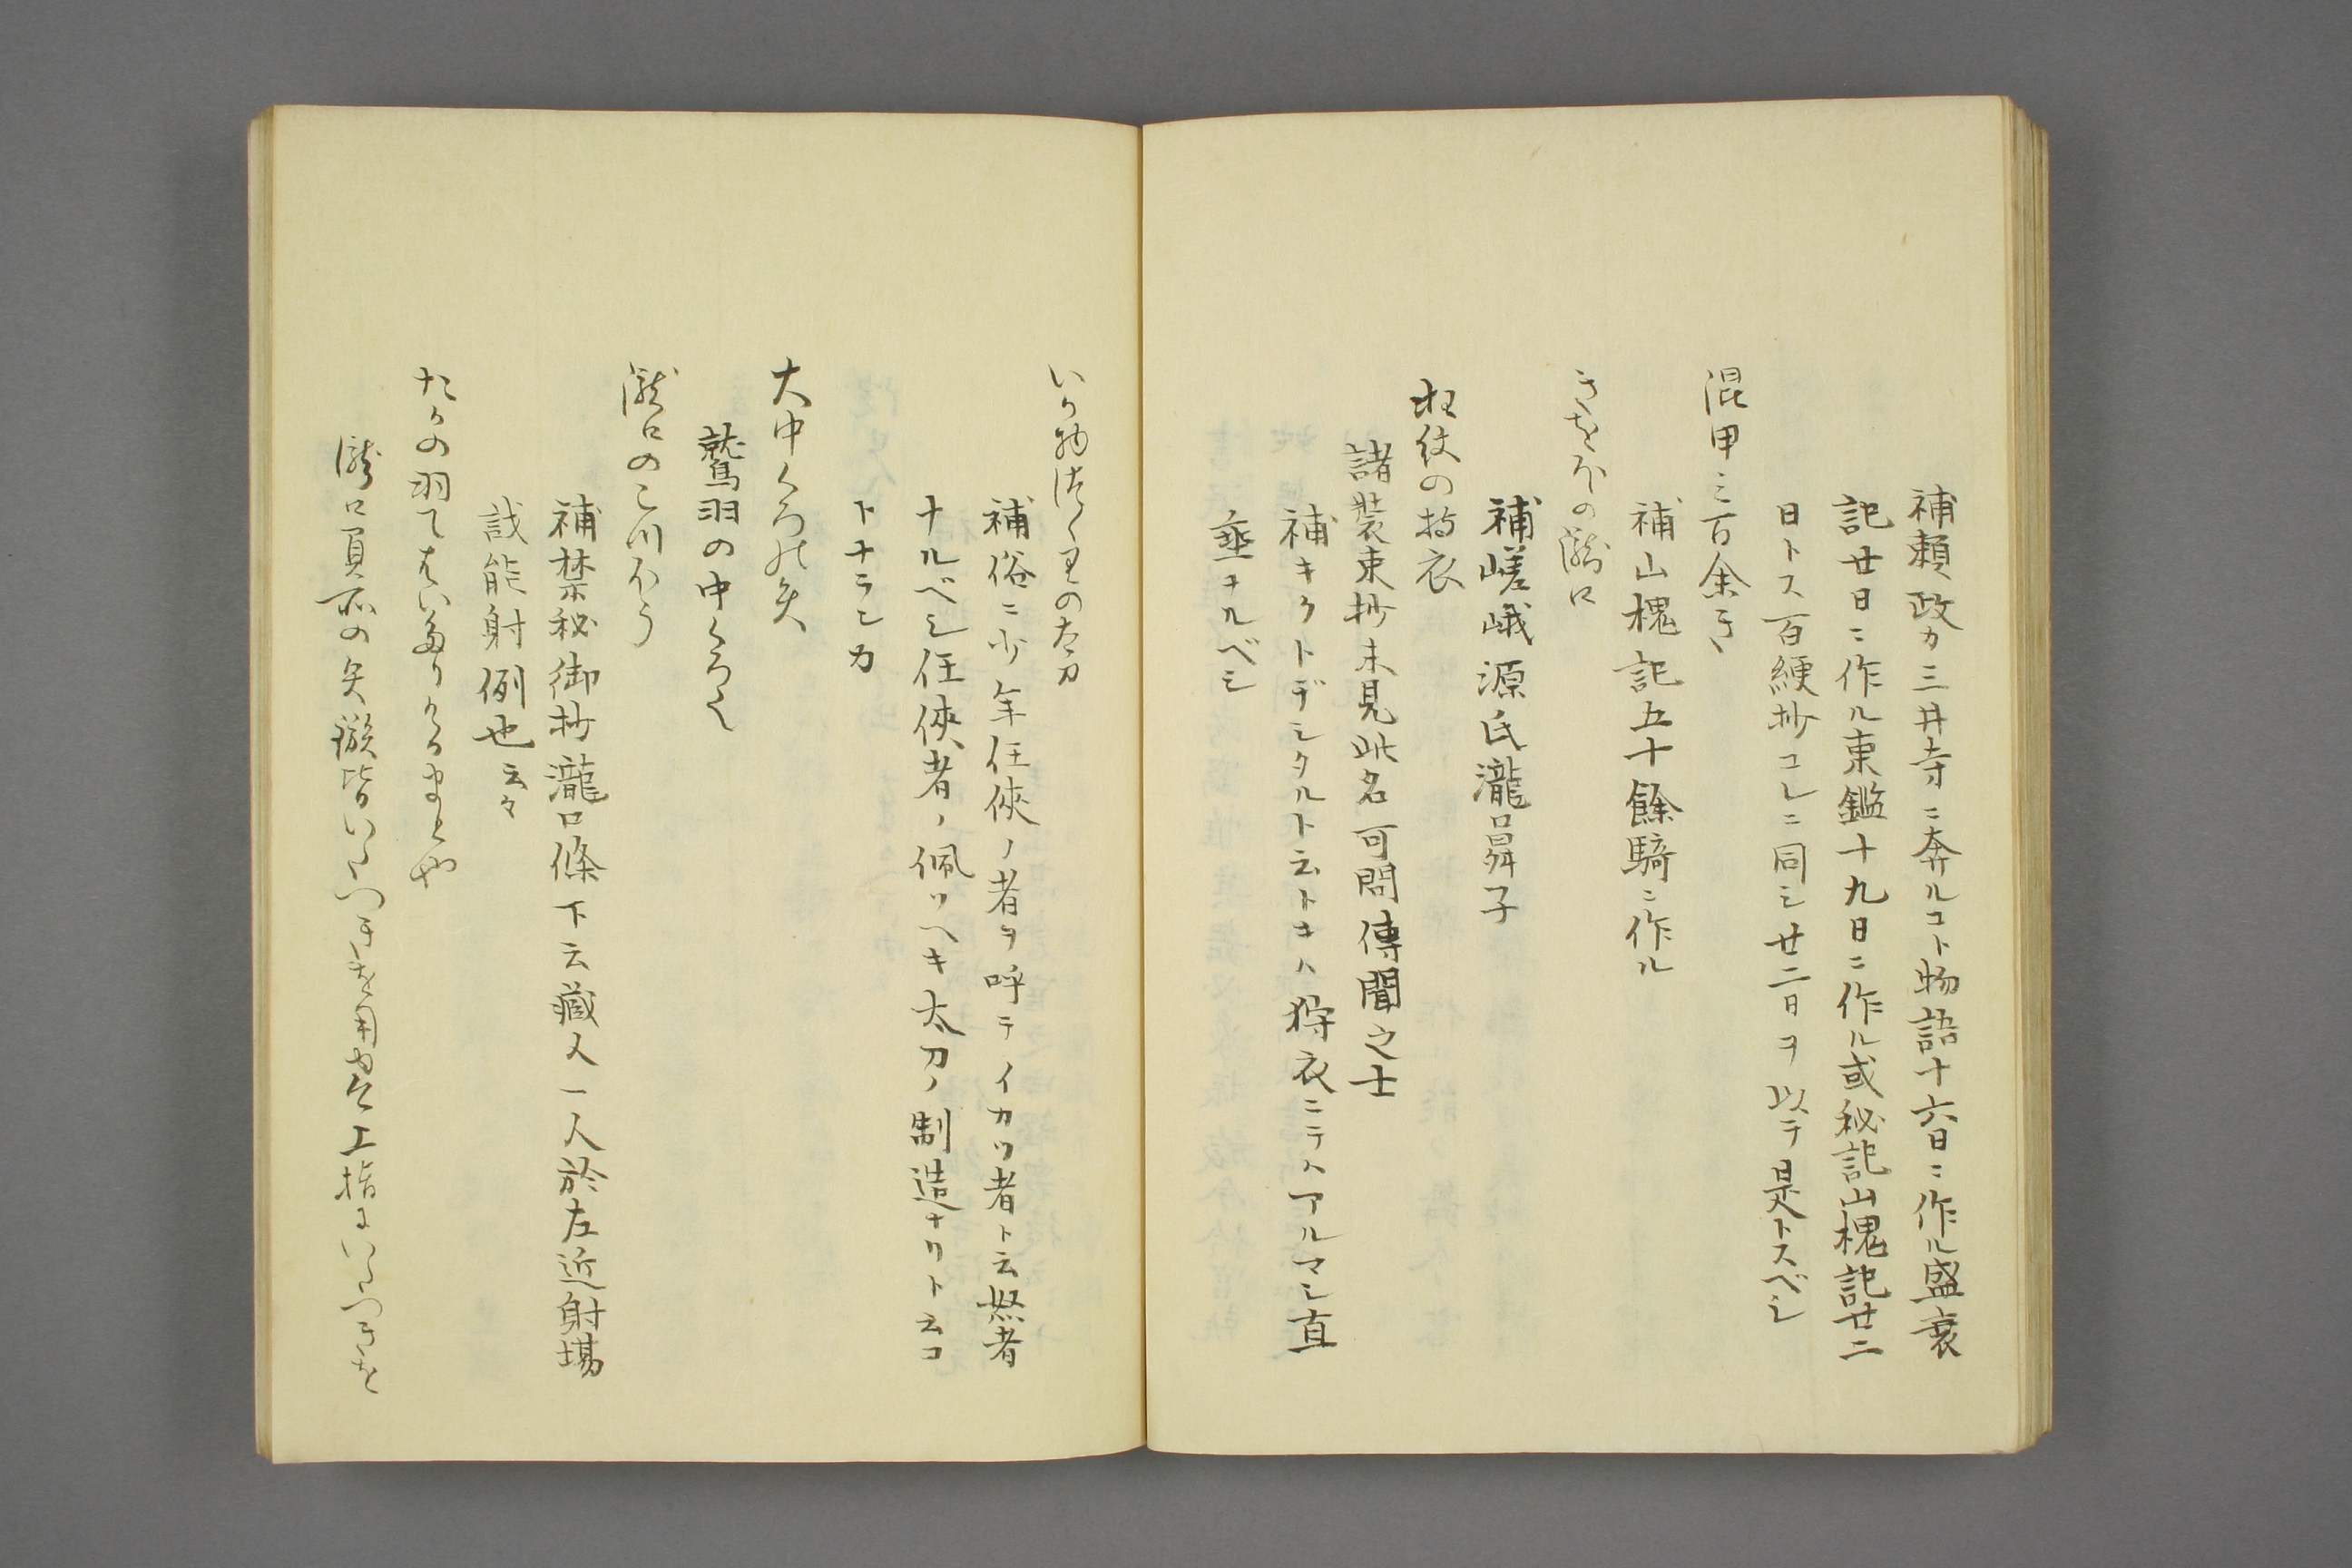 補頼政カ三井寺ニ奔ルコト物語十六日ニ作ル盛衰
記廿日ニ作ル東鑑十九日ニ作ル或秘記山槐記廿二
日トス百練抄コレニ同シ廿二日ヲ以テ是トスベシ
混甲三百余き
補山槐記五十餘騎ニ作ル
きをほの瀧口
補嵯峨源氏瀧口昇子
狂紋の狩衣
諸装束抄未見此名可問傳聞之士
補キクトヂシタルト云トキハ狩衣ニテハアルマシ直
垂ナルベシ
いか物つくりの太刀
補俗ニ少年任侠ノ者ヲ呼テイカツ者ト云怒者
ナルベシ任侠者ノ佩ツヘキ太刀ノ制造ナリト云コ
トナラシカ
大中くろの矢
鷲羽の中くろく
瀧口のこつほう
補禁秘御抄瀧口條下云蔵人一人於左近射場
試能射例也云々
たかの羽てはいたりけるまとや
瀧口員亦の矢鏃皆いたつきを用也上指にいたつきを